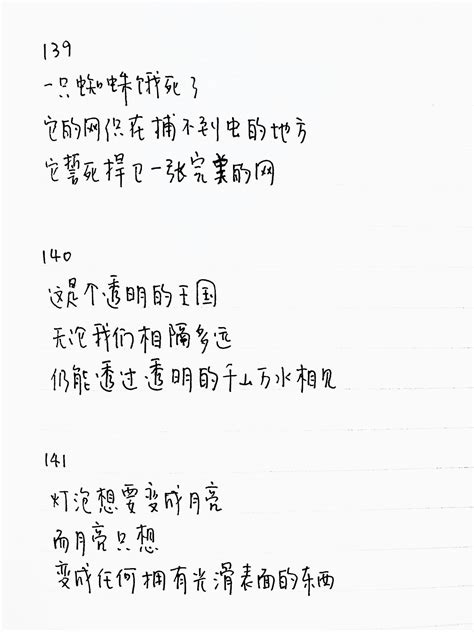 139
一只蜘蛛饿死了
它的网织在捕不到虫的地方
它誓死捍卫一张完美的网
140
这是个透明的王国
无论我们相隔多远
仍能透过透明的千山万水相见
141
灯泡想要变成月亮
而月亮只想
变成任何拥有光滑表面的东西